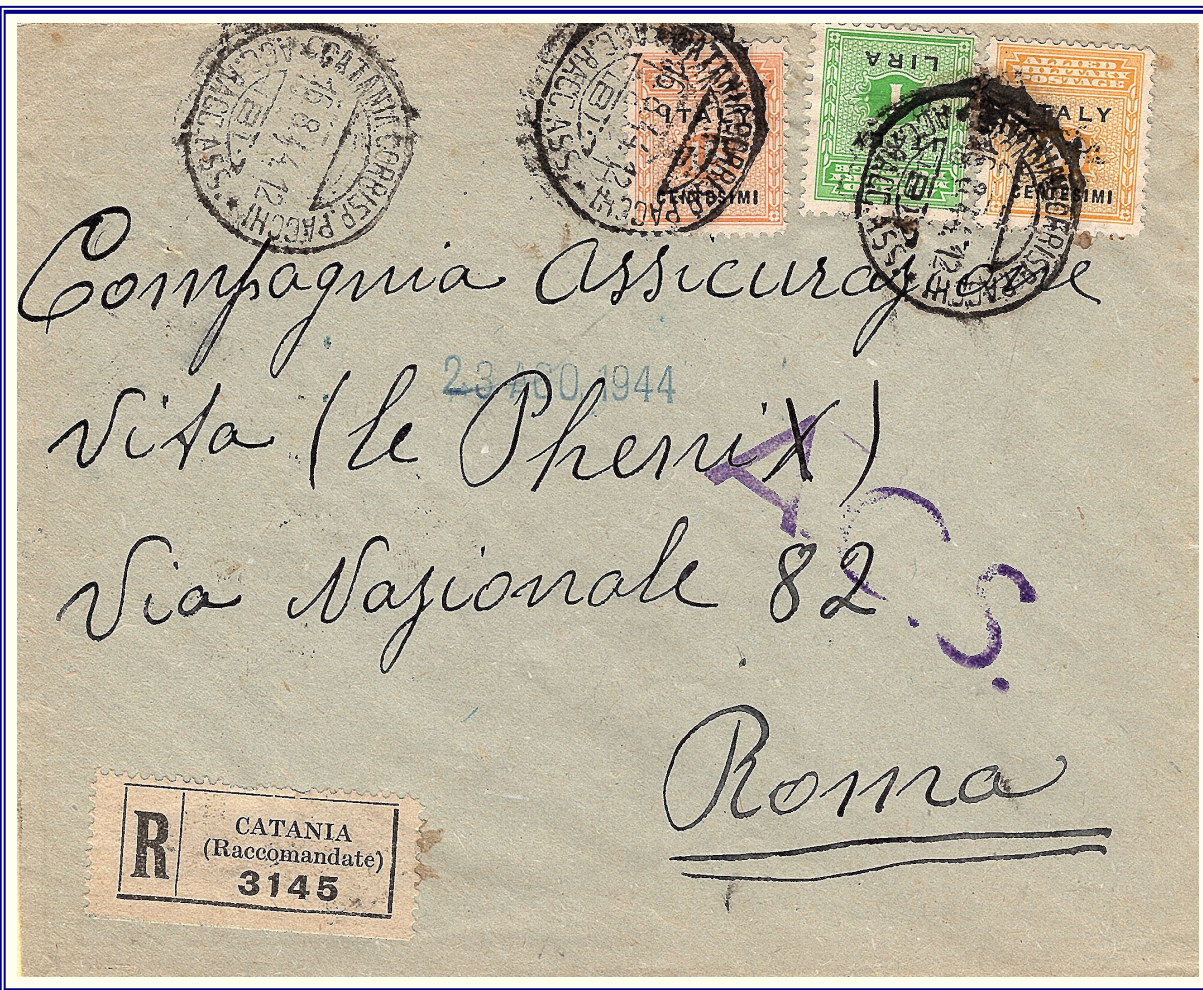 CATANIA CORRISP. PACCHI
ACC. RACC. ASS.
16.8.44.12
ITALY
CENTESIMI
LIRA
1
ALLIED
MILITARY
POSTAGE
ITALY
CENTESIMI
Compagnia Assicurazione
23 AGO. 1944
Vita (le Phenix)
A.C.S.
Via Nazionale 82
Roma
R
CATANIA
(Raccomandate)
3145